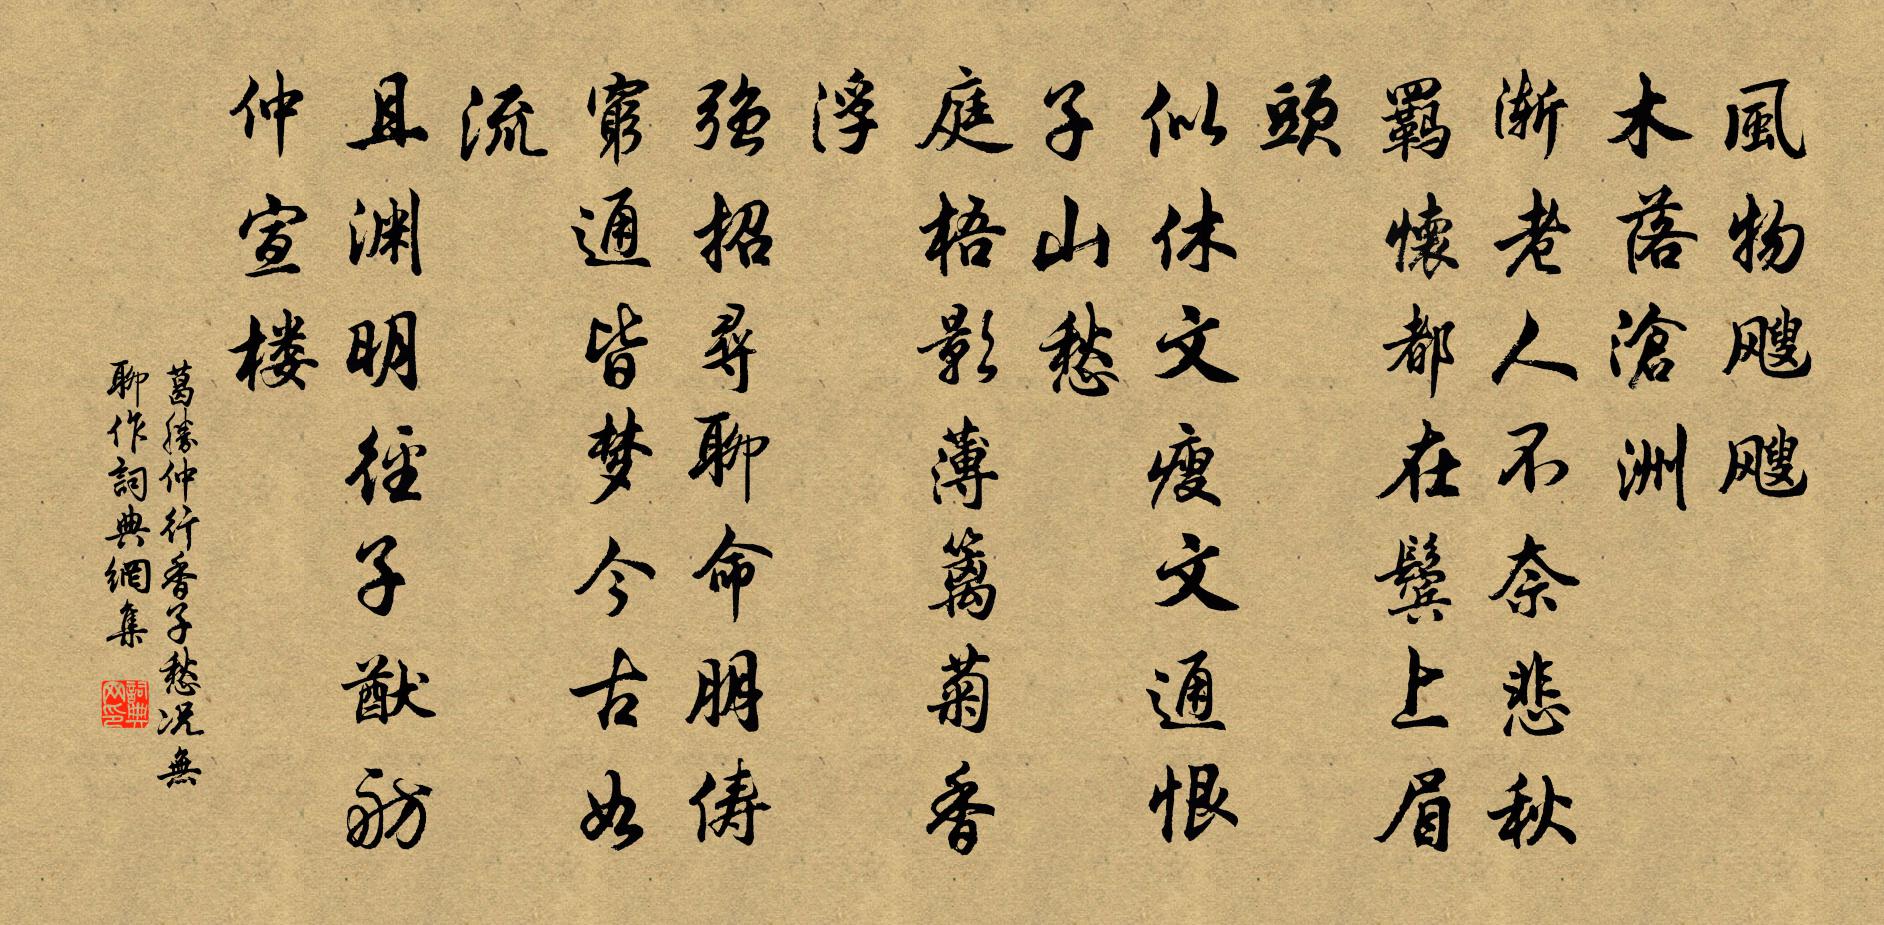 風物颼颼
木落滄洲
漸老人不奈悲秋
羈懷都在鬓上眉
頭
似休文瘦文通恨
子山愁
庭梧影薄篱菊香
浮
强招尋聊命朋儔
窮通皆梦今古如
流
且渊明径子猷舫
仲宣楼
葛勝仲行香子愁况無
聊作詞典網集
詞典
网印